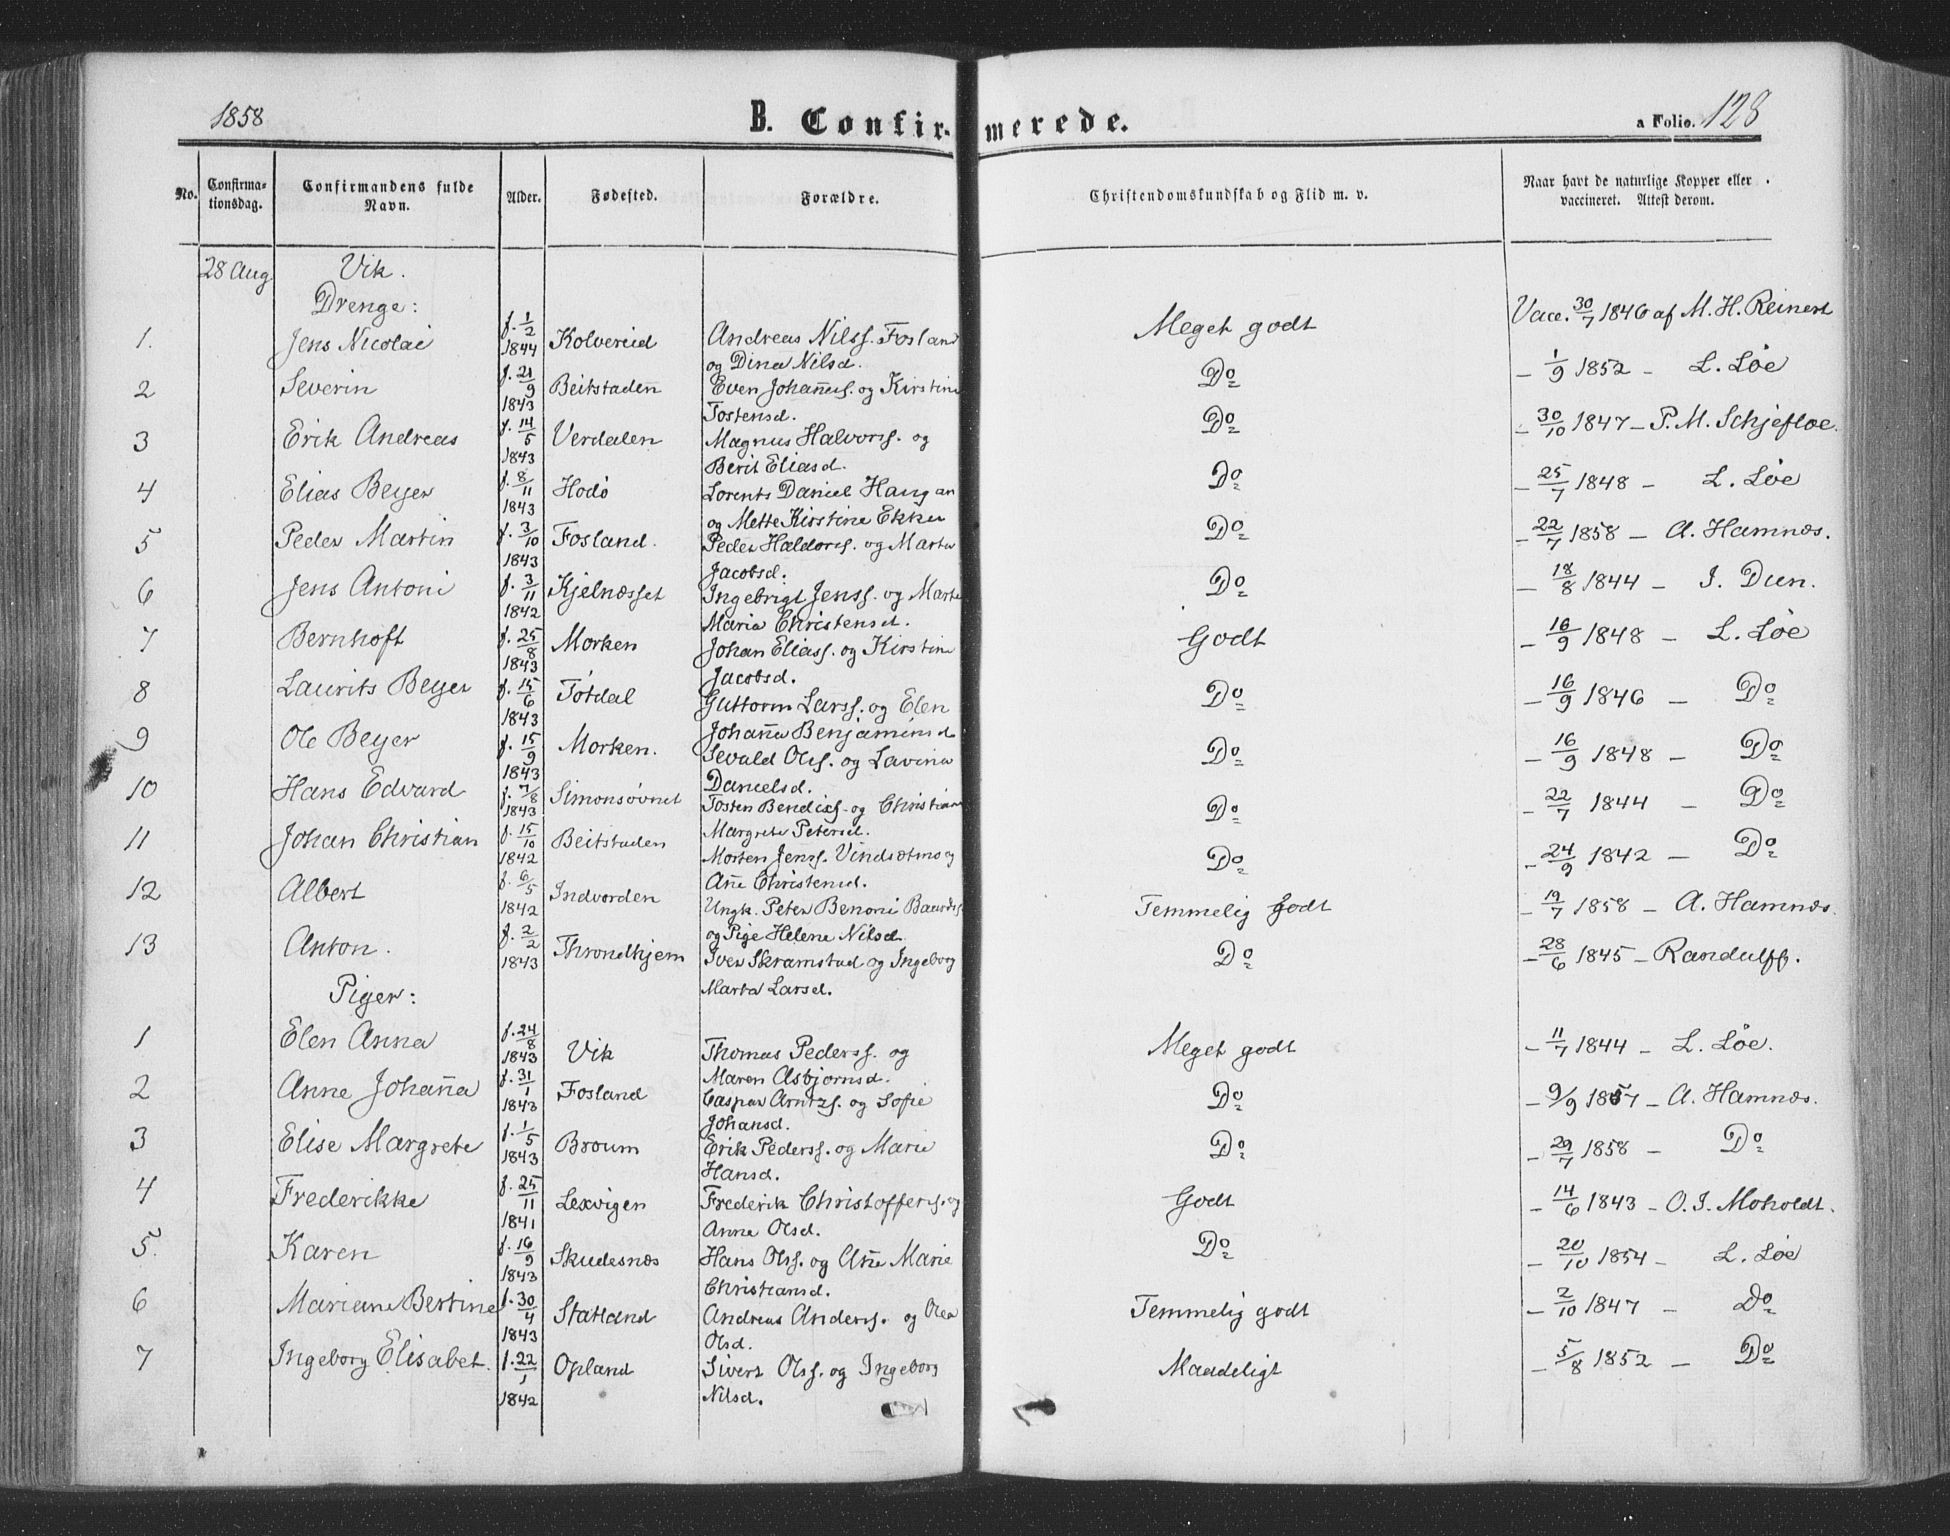 1858 B. Confirmerede. a Folio. 128
No. Confirmationsdag. Confirmandens fulde Navn. Alder. Fødested. Forældre. Christendomskundskab og Flid m. v. Naar havt de naturlige Kopper eller vaccineret. Attest derom.
28 Aug. Vik.
Drenge:
1. Jens Nicolai f. 1/2 1844 Kolvereid Andreas Nilss. Fosland og Dina Nilsd. Meget godt Vacc. 30/7 1846 af M. H. Reinert
2 Severin f. 21/9 1843 Beitstaden Even Johañess. og Kirstine Tostensd. Do - 1/9 1852 - L. Løe
3 Erik Andreas f. 14/5 1843 Verdalen Magnus Halvorss. og Berit Eliasd. Do - 30/10 1847 - P. M. Schjefloe.
4 Elias Beyer f. 8/11 1843 Hodø Lorents Daniel Haugan og Mette Kirstine Ekker Do - 25/7 1848 - L. Løe
5 Peder Martin f. 3/10 1843 Fosland. Peder Haldorss. og Marta Jacobsd. Do - 22/7 1858 - A. Hamnæs.
6 Jens Antoni f. 3/11 1842 Kjelnæsset Ingebrigt Jenss. og Marte Maria Christensd. Do - 18/8 1844 - J. Dun.
7 Bernhoft f. 25/8 1843 Morken Johan Eliass. og Kirstine Jacobsd. Godt - 16/9 1848 - L. Løe
8 Laurits Beyer f. 15/6 1843 Tøtdal Guttorm Larss. og Elen Johaña Benjaminsd Do - 16/9 1846 - Do
9 Ole Beyer f. 15/9 1843 Morken. Sevald Olss. og Lavina Danielsd. Do - 16/9 1848 - Do
10 Hans Edvard f. 7/8 1843 Simonsøvnet Tosten Bendixs. og Christiane Margrete Petersd. Do - 22/7 1844 - Do
11 Johan Christian f. 15/10 1842 Beitstaden Morten Jenss. Vindsætmo og Añe Christensd. Do - 24/9 1842 - Do
12 Albert f. 6/5 1842 Indvorden Ungk. Peter Benoni Baardss. og Pige Helene Nilsd. Temmelig godt - 19/7 1858 - A. Hamnæs.
13 Anton. f. 2/2 1843 Throndhjem Iver Skramstad og Ingeborg Marta Larsd. Do - 28/6 1845 - Randulff.
Piger:
1 Elen Anna f. 24/8 1843 Vik Thomas Pederss. og Maren Asbjørnsd. Meget godt - 11/7 1844 - L. Løe.
2 Anne Johaña f. 31/1 1843 Fosland Caspar Arntzs. og Sofie Johansd. Do - 9/9 1857 - A. Hamnæs.
3 Elise Margrete f. 1/5 1843 Broum Erik Pederss. og Marie Hansd. Do - 29/7 1858 - Do
4 Frederikke f. 25/11 1841 Lexvigen Frederik Christoffers. og Anne Olsd. Godt - 14/6 1843 - O. J. Moholdt.
5. Karen f. 16/9 1843 Skudesnæs Hans Olss. og Añe Marie Christiansd. Do - 20/10 1854 - L. Løe
6 Mariane Bertine f. 30/4 1843 Statland Andreas Anderss. og Olea Olsd. Temmelig godt - 2/10 1847 - Do
7 Ingeborg Elisabet. f. 22/1 1842 Opland Sivert Olss. og Ingeborg Nilsd. Maadeligt - 5/8 1852 - Do